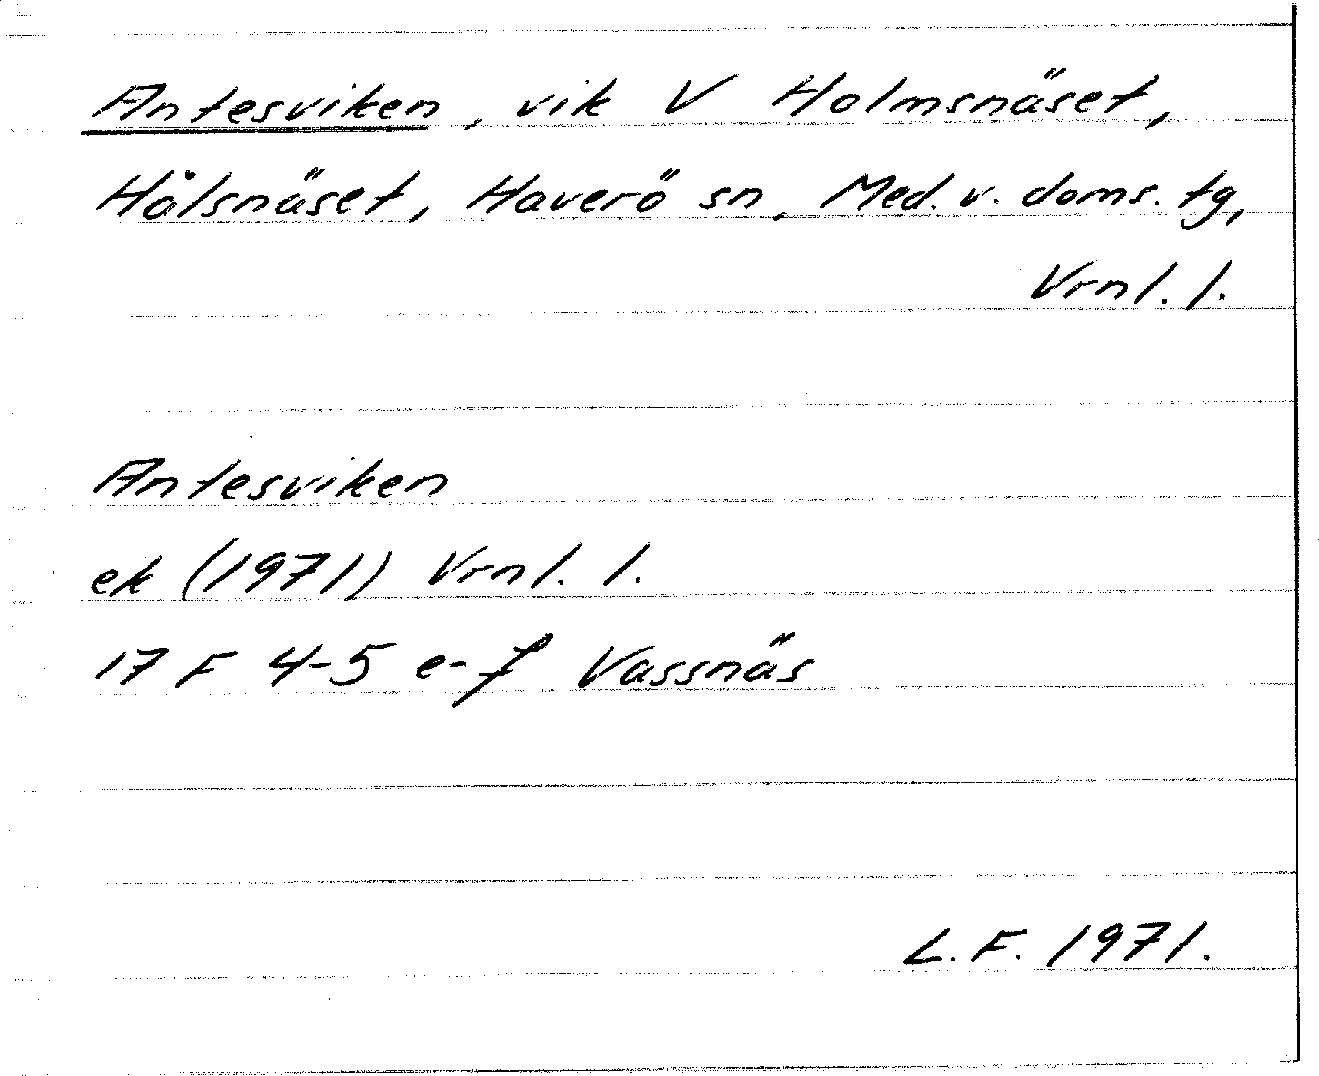 Antesviken, vik V Holmsnäset,
Hålsnäset, Haverö sn, Med. v. doms. tg,
Vrnl. l.
Antesviken
ek (1971) Vrnl. l.
17 F 4-5 e-f Vassnäs
L.F. 1971.